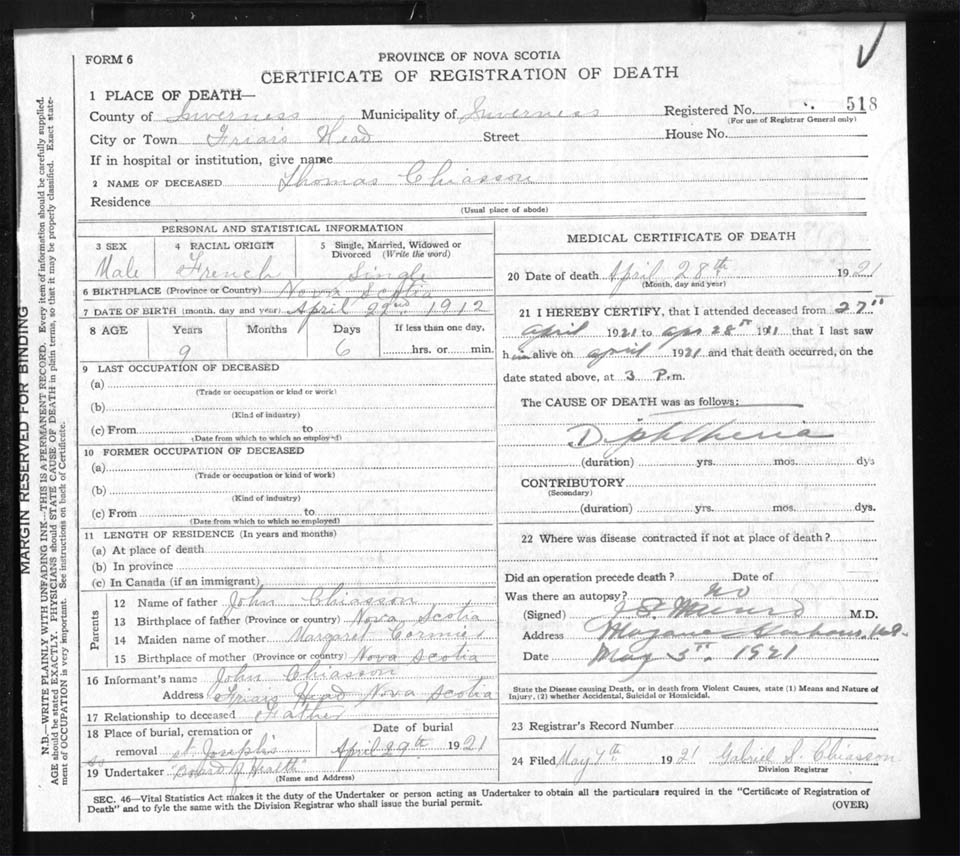 FORM 6
PROVINCE OF NOVA SCOTIA
CERTIFICATE OF REGISTRATION OF DEATH
1 PLACE OF DEATH—
County of Inverness Municipality of Inverness Registered No. 518
(For use of Registrar General only)
City or Town Friar's Head Street House No.
If in hospital or institution, give name
2 NAME OF DECEASED Thomas Chiasson
Residence
(Usual place of abode)
PERSONAL AND STATISTICAL INFORMATION
3 SEX 4 RACIAL ORIGIN 5 Single, Married, Widowed or Divorced (Write the word)
Male French Single
6 BIRTHPLACE (Province or Country) Nova Scotia
7 DATE OF BIRTH (month, day and year) April 22nd 1912
8 AGE Years Months Days If less than one day,
9 6 hrs. or min.
9 LAST OCCUPATION OF DECEASED
(a)
(Trade or occupation or kind or work)
(b)
(Kind of industry)
(c) From to
(Date from which to which so employed)
10 FORMER OCCUPATION OF DECEASED
(a)
(Trade or occupation or kind of work)
(b)
(Kind of industry)
(c) From to
(Date from which to which so employed)
11 LENGTH OF RESIDENCE (In years and months)
(a) At place of death
(b) In province
(c) In Canada (if an immigrant)
Parents
12 Name of father John Chiasson
13 Birthplace of father (Province or country) Nova Scotia
14 Maiden name of mother Margaret Cormier
15 Birthplace of mother (Province or country) Nova Scotia
16 Informant's name John Chiasson
Address Friars Head Nova Scotia
17 Relationship to deceased Father
18 Place of burial, cremation or Date of burial
removal St Joseph's April 29th 1921
19 Undertaker "Board of Health"
(Name and Address)
MEDICAL CERTIFICATE OF DEATH
20 Date of death April 28th 1921
(Month, day and year)
21 I HEREBY CERTIFY, that I attended deceased from 27th
April 1921 to Apr 28th 1911 that I last saw
him alive on April 1921 and that death occurred, on the
date stated above, at 3 P.m.
The CAUSE OF DEATH was as follows:
Diphtheria
(duration) yrs. mos. dys
CONTRIBUTORY
(Secondary)
(duration) yrs. mos. dys.
22 Where was disease contracted if not at place of death?
Did an operation precede death? Date of
Was there an autopsy? no
(Signed) Munro M.D.
Address Harbour, N.S.
Date May 5th. 1921
State the Disease causing Death, or in death from Violent Causes, state (1) Means and Nature of
Injury, (2) whether Accidental, Suicidal or Homicidal.
23 Registrar's Record Number
24 Filed May 7th 1921 Gabriel S. Chiasson
Division Registrar
SEC. 46—Vital Statistics Act makes it the duty of the Undertaker or person acting as Undertaker to obtain all the particulars required in the "Certificate of Registration of
Death" and to fyle the same with the Division Registrar who shall issue the burial permit.
(OVER)
MARGIN RESERVED FOR BINDING
N.B.—WRITE PLAINLY WITH UNFADING INK—THIS IS A PERMANENT RECORD. Every item of information should be carefully supplied.
AGE should be stated EXACTLY. PHYSICIANS should STATE CAUSE OF DEATH in plain terms, so that it may be properly classified. Exact state-
ment of OCCUPATION is very important. See instructions on back of Certificate.